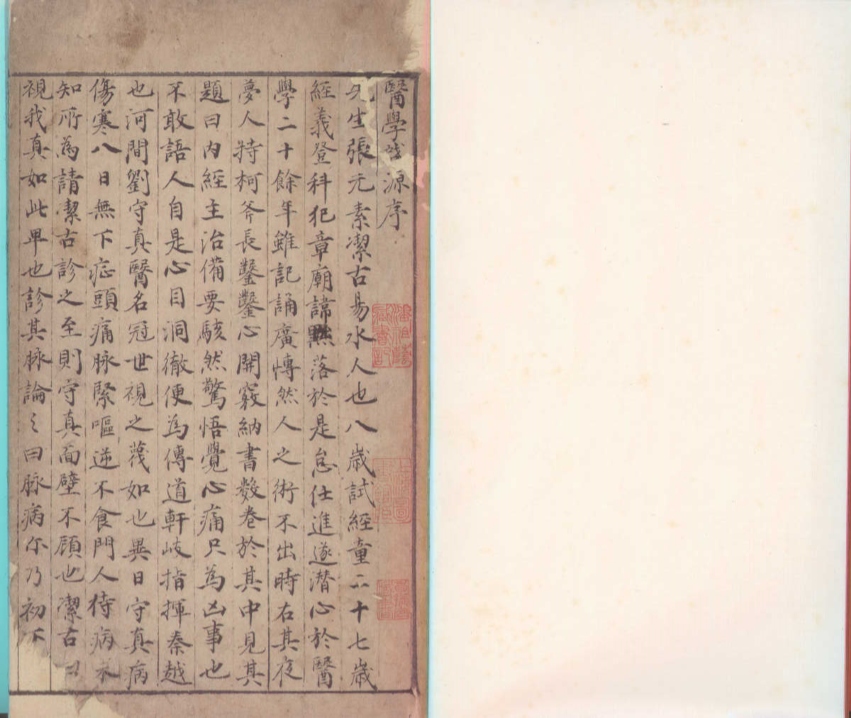 醫學啓源序
先生張元素潔古易水人也八歲試經童二十七歲
經義登科犯章廟諱黜落於是怠仕進遂潛心於醫
學二十餘年雖記誦廣博然人之術不出時右其夜
夢人持柯斧長鑿鑿心開竅納書數卷於其中見其
題曰內經主治備要駭然驚悟覺心痛只為凶事也
不敢語人自是心目洞徹便為傳道軒岐指揮秦越
也河間劉守真醫名冠世視之蔑如也異日守真病
傷寒八日無下症頭痛脉緊嘔逆不食門人侍病未
知所為請潔古診之至則守真面壁不顧也潔古曰
視我真如此卑也診其脉論之曰脉病尔乃初下